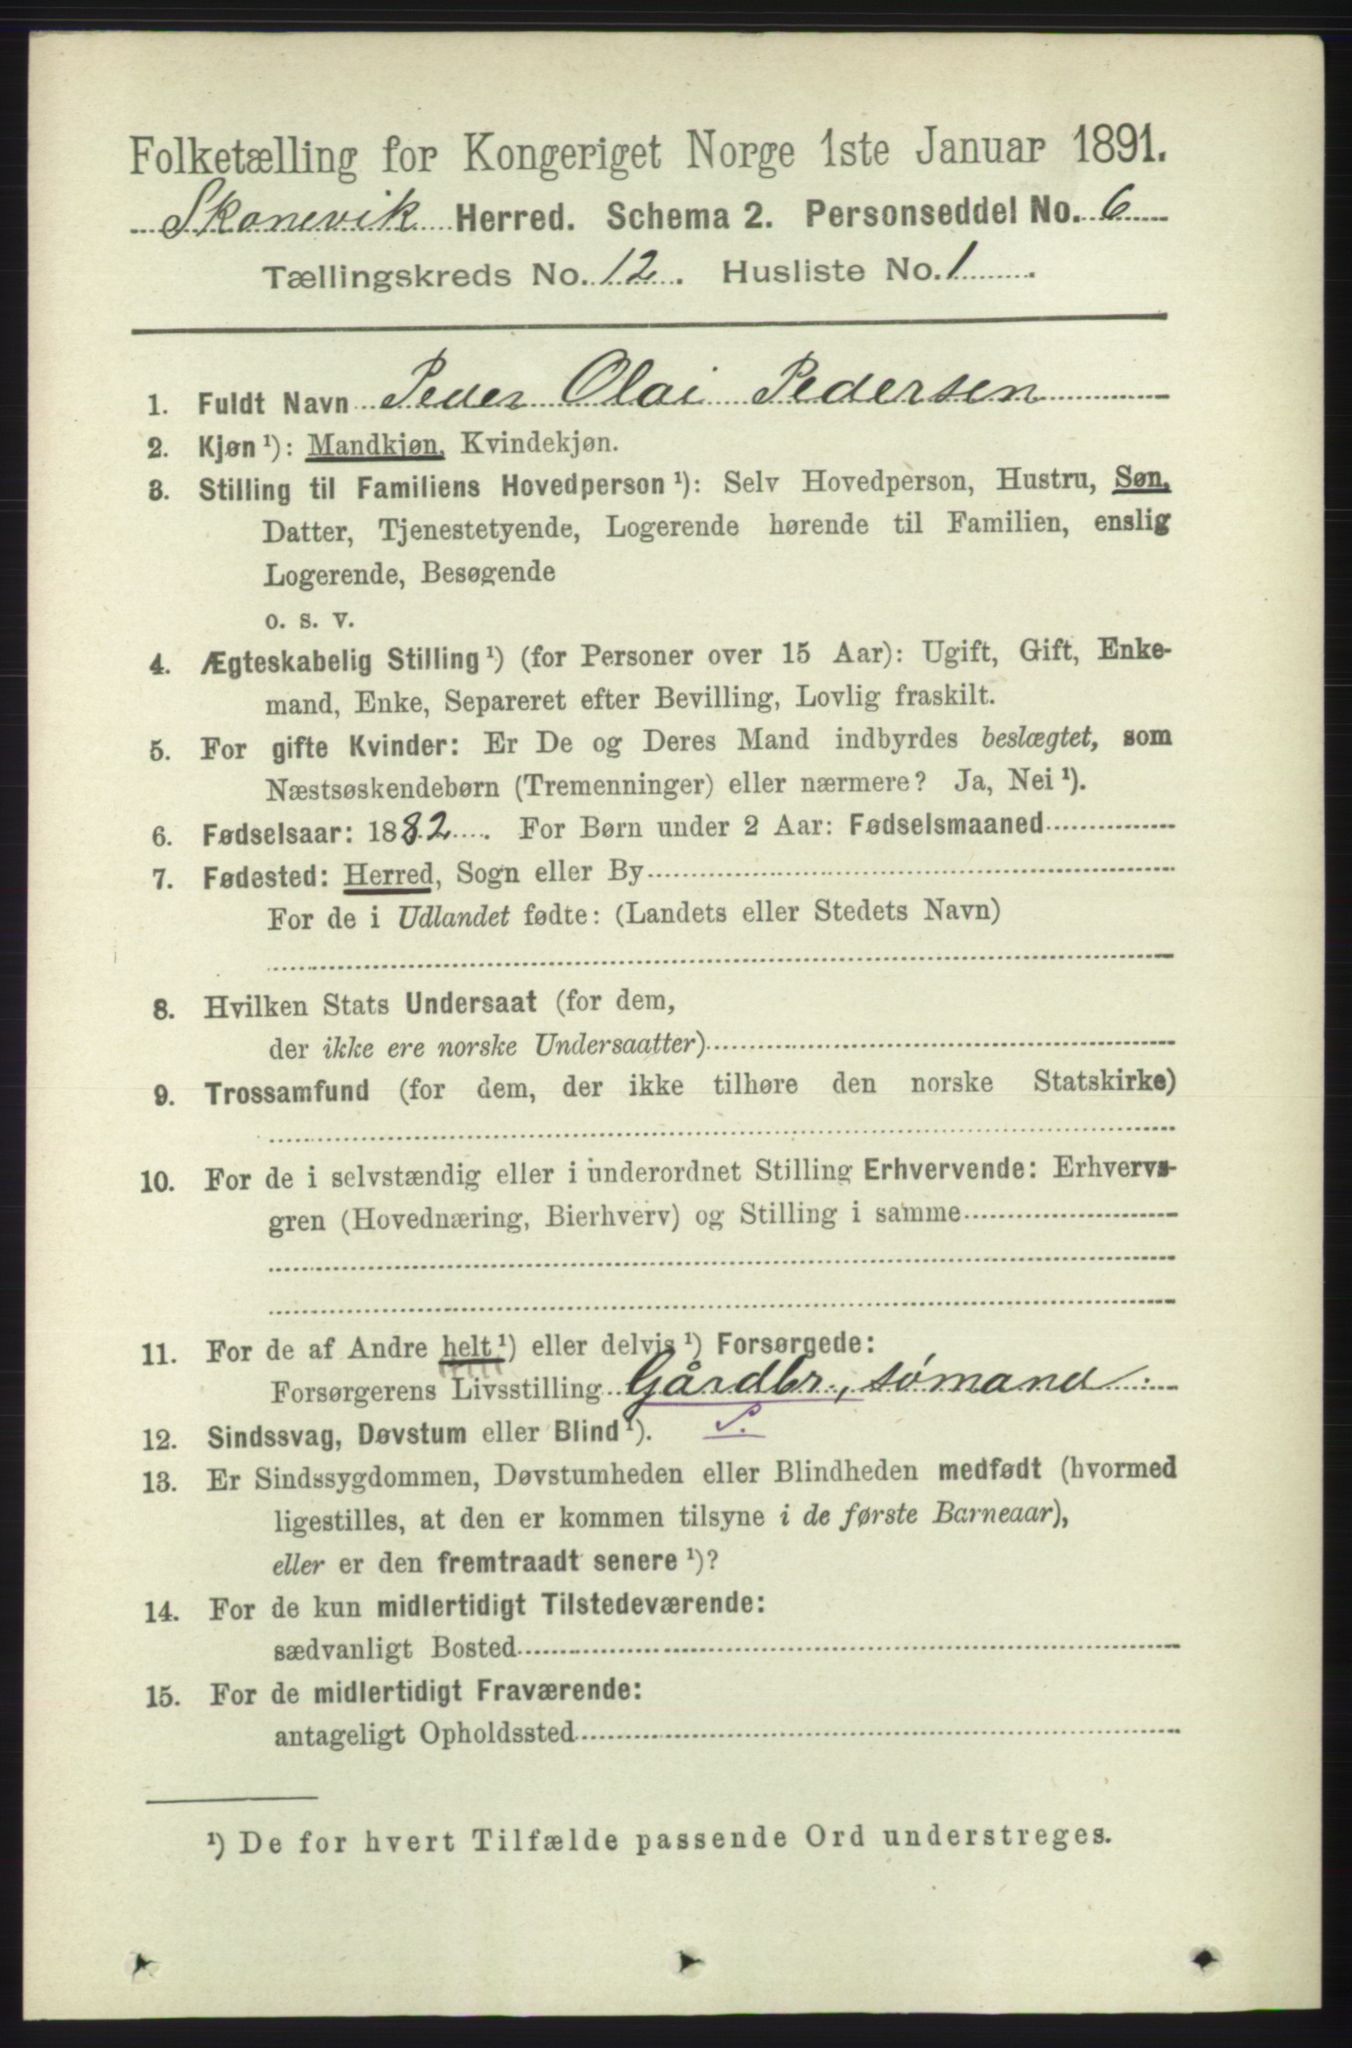 Folketælling for Kongeriget Norge 1ste Januar 1891.
Skonevik Herred. Schema 2. Personseddel No. 6
Tællingskreds No. 12. Husliste No. 1
1. Fuldt Navn Peder Olai Pedersen
2. Kjøn ¹): Mandkjøn, Kvindekjøn.
3. Stilling til Familiens Hovedperson ¹): Selv Hovedperson, Hustru, Søn,
Datter, Tjenestetyende, Logerende hørende til Familien, enslig
Logerende, Besøgende
o. s. v.
4. Ægteskabelig Stilling ¹) (for Personer over 15 Aar): Ugift, Gift, Enke-
mand, Enke, Separeret efter Bevilling, Lovlig fraskilt.
5. For gifte Kvinder: Er De og Deres Mand indbyrdes beslægtet, som
Næstsøskendebørn (Tremenninger) eller nærmere? Ja, Nei ¹).
6. Fødselsaar: 1882. For Børn under 2 Aar: Fødselsmaaned
7. Fødested: Herred, Sogn eller By
For de i Udlandet fødte: (Landets eller Stedets Navn)
8. Hvilken Stats Undersaat (for dem,
der ikke ere norske Undersaatter)
9. Trossamfund (for dem, der ikke tilhøre den norske Statskirke)
10. For de i selvstændig eller i underordnet Stilling Erhvervende: Erhvervs-
gren (Hovednæring, Bierhverv) og Stilling i samme
11. For de af Andre helt ¹) eller delvis ¹) Forsørgede:
Forsørgerens Livsstilling Gårdbr., sømand.
12. Sindssvag, Døvstum eller Blind ¹). S.
13. Er Sindssygdommen, Døvstumheden eller Blindheden medfødt (hvormed
ligestilles, at den er kommen tilsyne i de første Barneaar),
eller er den fremtraadt senere ¹)?
14. For de kun midlertidigt Tilstedeværende:
sædvanligt Bosted
15. For de midlertidigt Fraværende:
antageligt Opholdssted
¹) De for hvert Tilfælde passende Ord understreges.